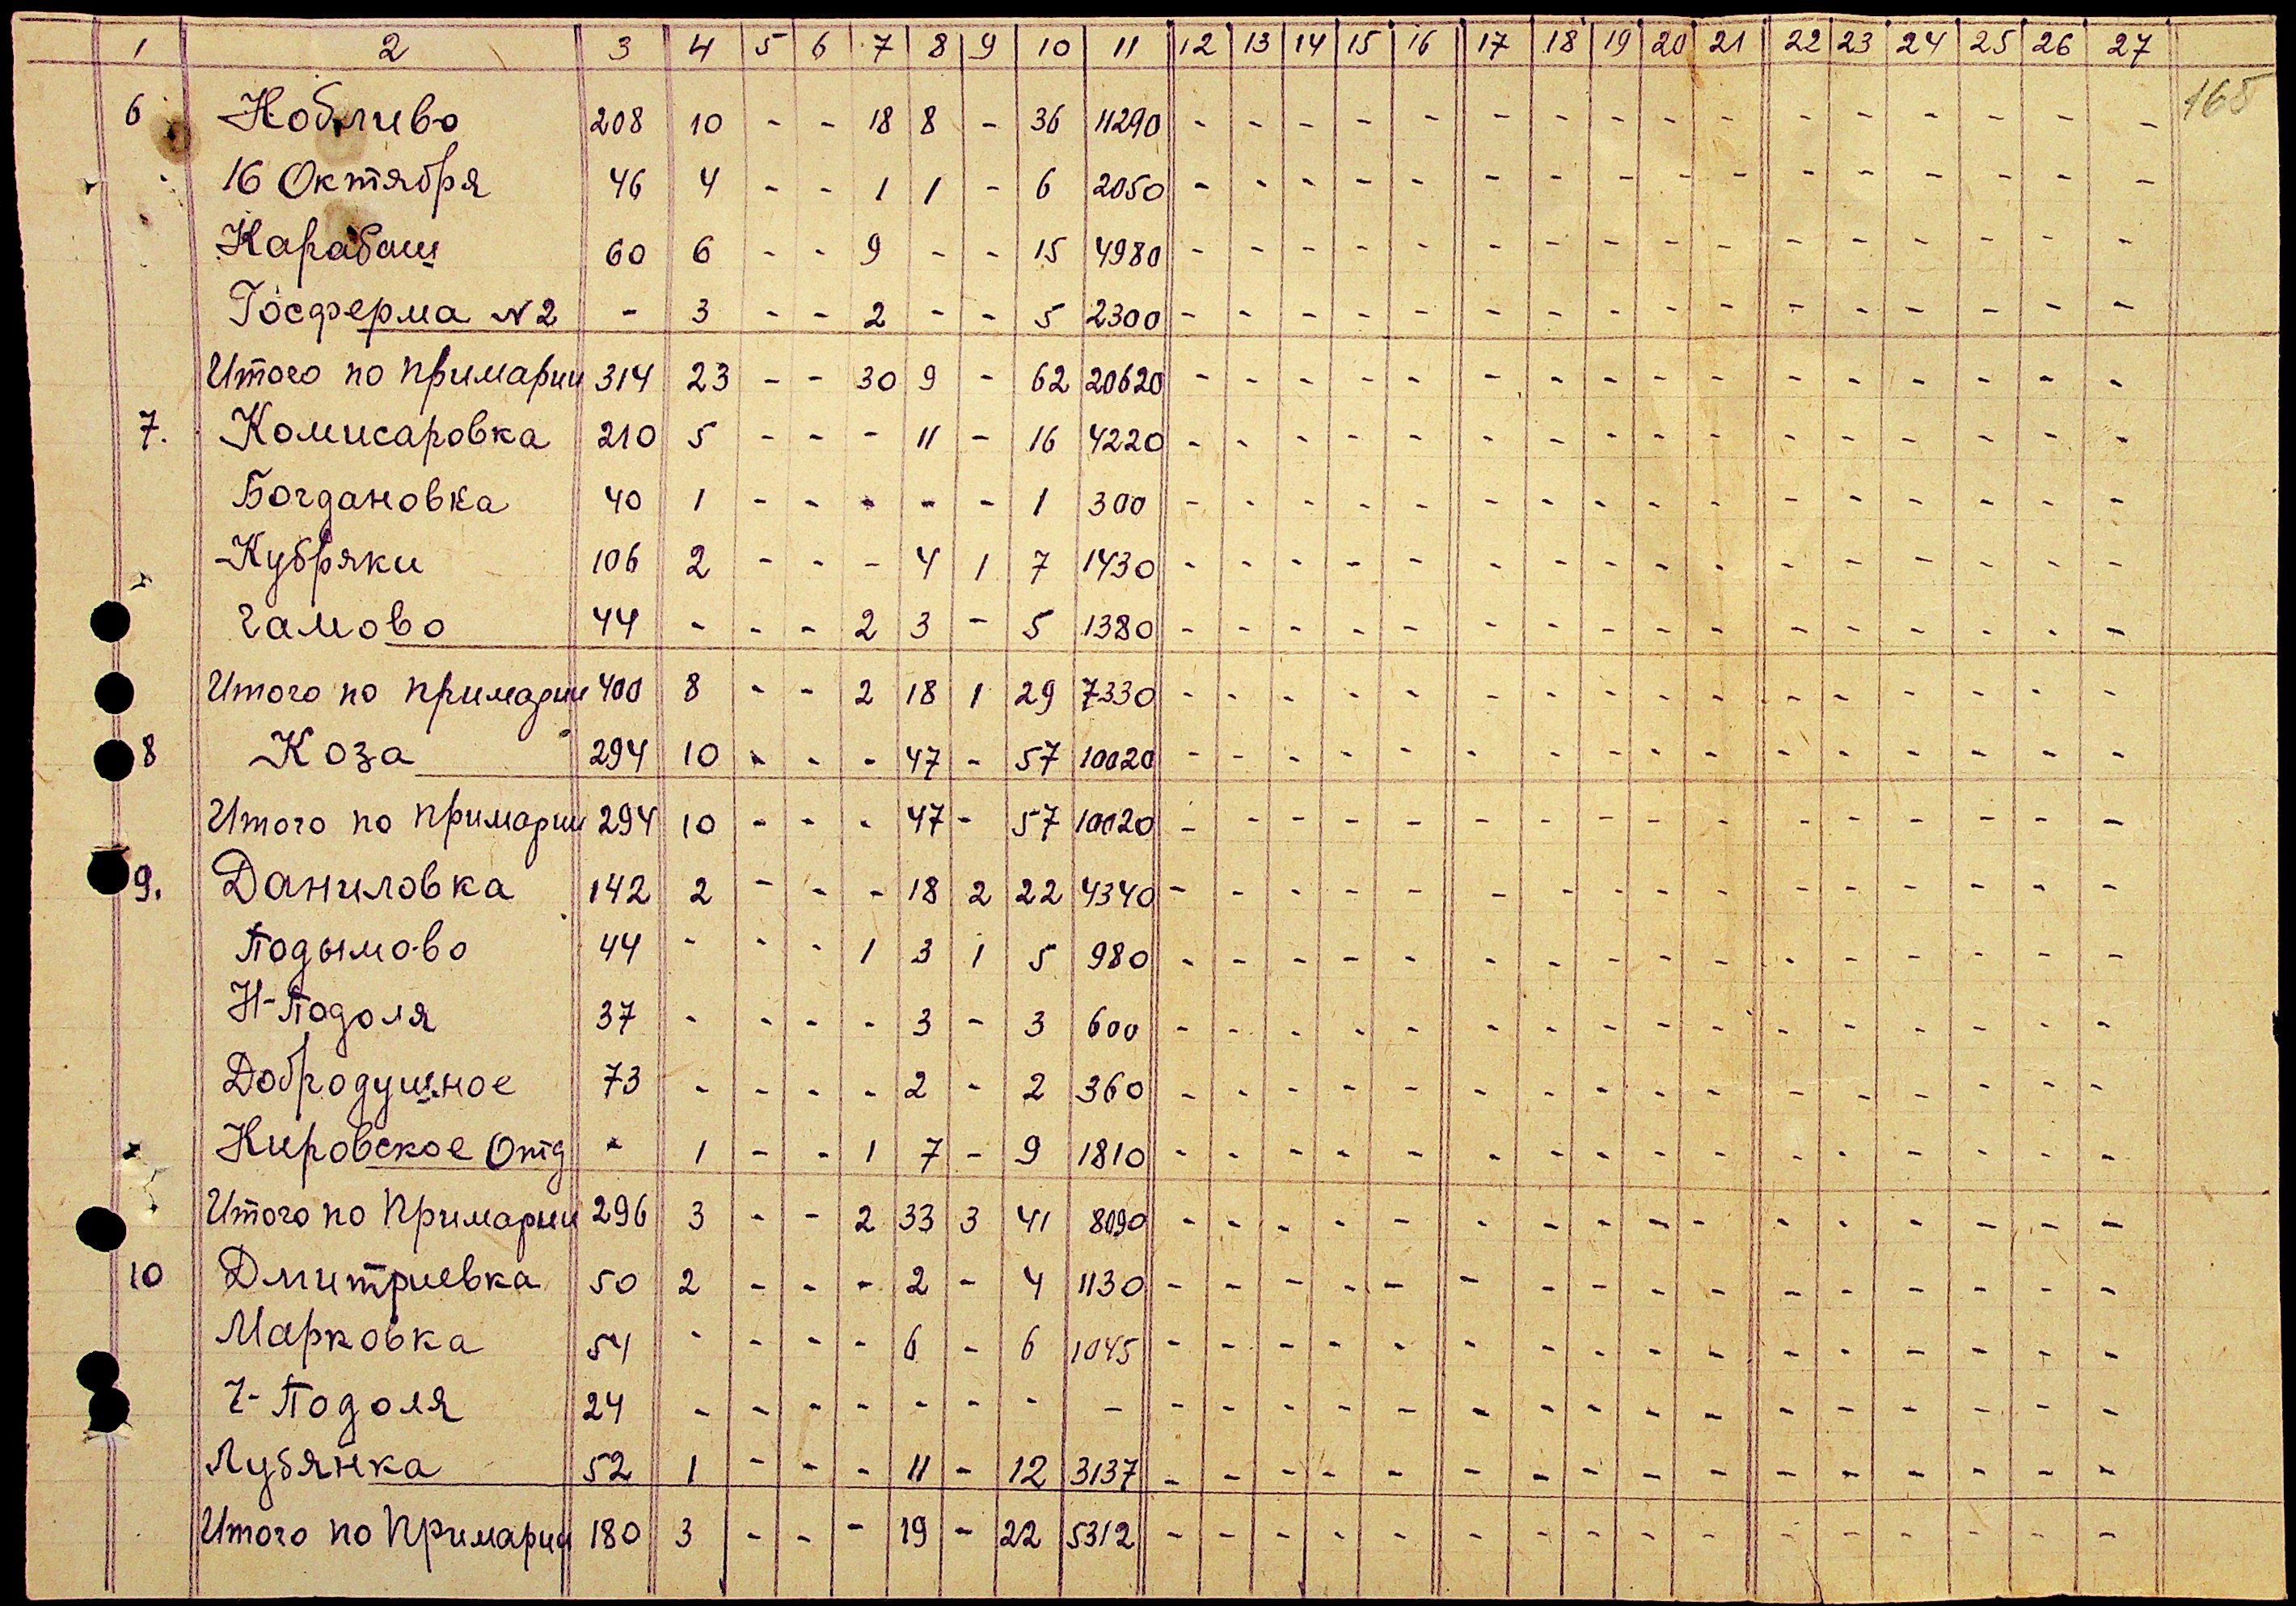 1 2 3 4 5 6 7 8 9 10 11 12 13 14 15 16 17 18 19 20 21 22 23 24 25 26 27
168
6 Коблнево 208 10 - - 18 8 - 36 11290 - - - - - - - - - - - - - - - -
16 Октября 46 4 - - 1 1 - 6 2050 - - - - - - - - - - - - - - - -
Карабаш 60 6 - - 9 - - 15 4980 - - - - - - - - - - - - - - - -
Госферма N2 - 3 - - 2 - - 5 2300 - - - - - - - - - - - - - - - -
Итого по примарии 314 23 - - 30 9 - 62 20620 - - - - - - - - - - - - - - - -
7. Комисаровка 210 5 - - - 11 - 16 4220 - - - - - - - - - - - - - - - -
Богдановка 40 1 - - - - - 1 300 - - - - - - - - - - - - - - - -
Кубряки 106 2 - - - 4 1 7 1430 - - - - - - - - - - - - - - - -
Чамово 44 - - - 2 3 - 5 1380 - - - - - - - - - - - - - - - -
Итого по примарии 400 8 - - 2 18 1 29 7330 - - - - - - - - - - - - - - - -
8 Коза 294 10 - - - 47 - 57 10020 - - - - - - - - - - - - - - - -
Итого по примарии 294 10 - - - 47 - 57 10020 - - - - - - - - - - - - - - - -
9. Даниловка 142 2 - - - 18 2 22 4340 - - - - - - - - - - - - - - - -
Подымово 44 - - - 1 3 1 5 980 - - - - - - - - - - - - - - - -
Н-Подоля 37 - - - - 3 - 3 600 - - - - - - - - - - - - - - - -
Добродушное 73 - - - - 2 - 2 360 - - - - - - - - - - - - - - - -
Кировское Отд - 1 - - 1 7 - 9 1810 - - - - - - - - - - - - - - - -
Итого по Примарии 296 3 - - 2 33 3 41 8090 - - - - - - - - - - - - - - - -
10 Дмитриевка 50 2 - - - 2 - 4 1130 - - - - - - - - - - - - - - - -
Марковка 54 - - - - 6 - 6 1045 - - - - - - - - - - - - - - - -
Ч-Подоля 24 - - - - - - - - - - - - - - - - - - - - - - - -
Лубянка 52 1 - - - 11 - 12 3137 - - - - - - - - - - - - - - - -
Итого по Примарии 180 3 - - - 19 - 22 5312 - - - - - - - - - - - - - - - -